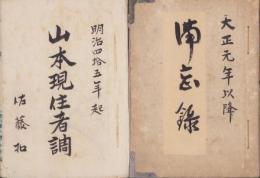 明治四拾五年起
山本現住者調
佐藤扣
大正元年以降
備忘錄